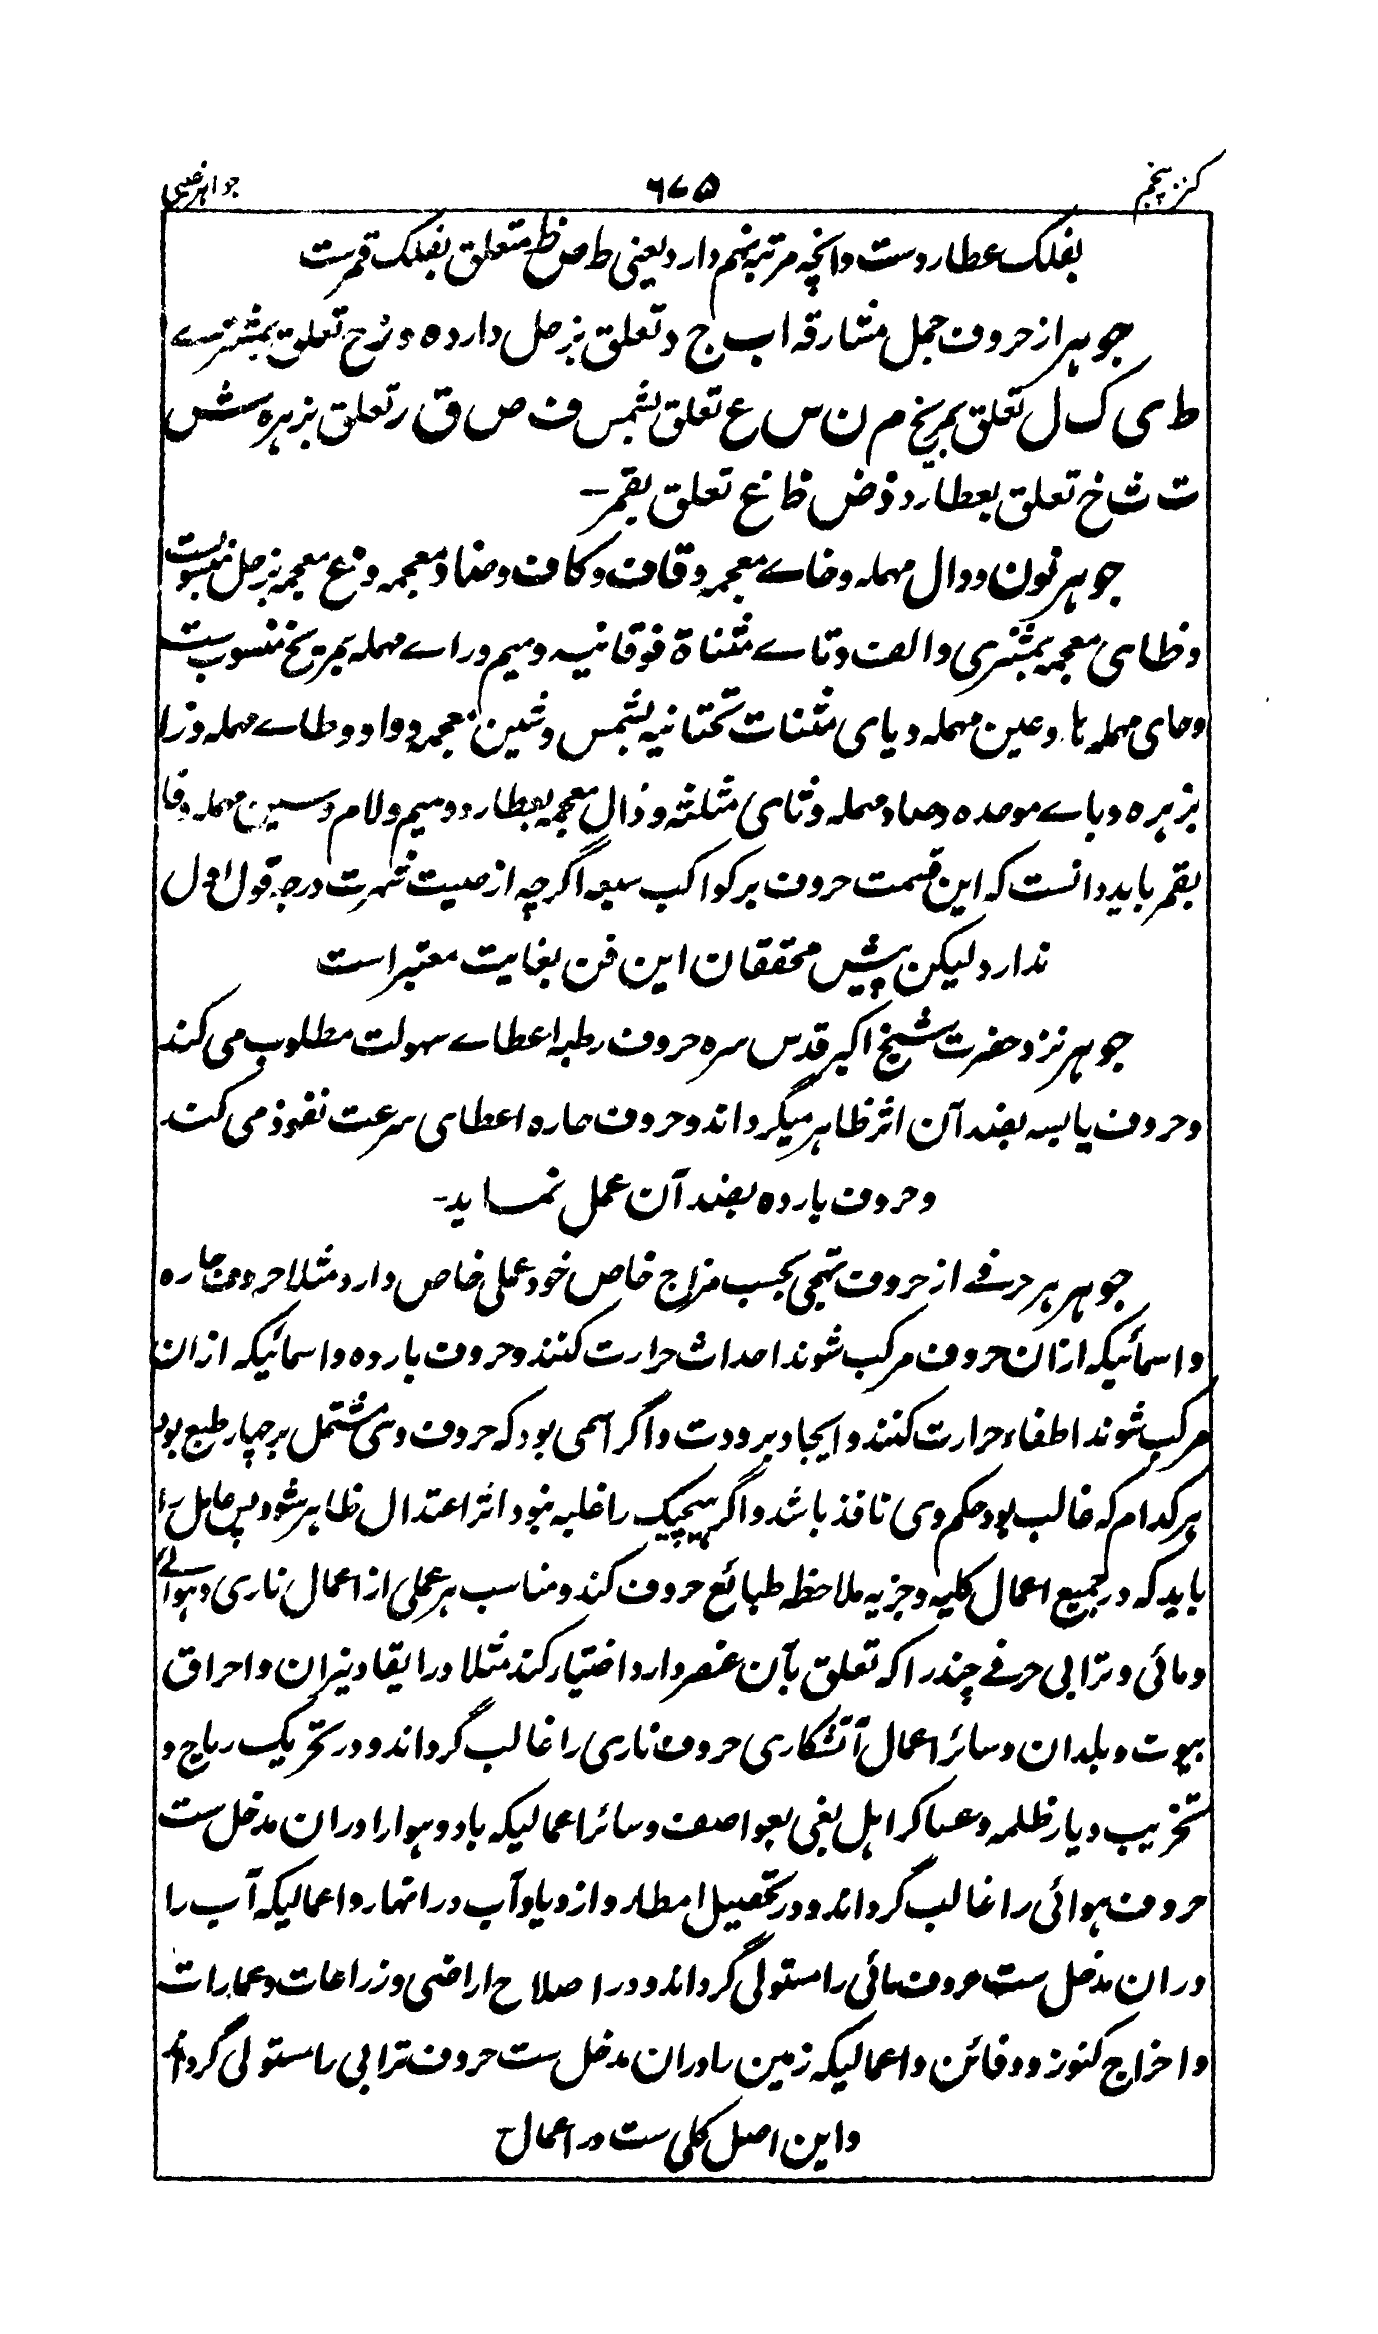 کنز پنجم ۶۷۵ جواهر غیبی
بفلک عطاردست وانچه مرتبه نهم دارد یعنی ط ص ظ متعلق بفلک قمرست
جوهر از حروف جمل مشارقه ا ب ج د تعلق بزحل دارد ه و ز ح تعلق بمشترے
ط ی ک ل تعلق بمریخ م ن س ع تعلق بشمس ف ص ق ر تعلق بزهره ش
ت ث خ تعلق بعطارد ذ ض ظ غ تعلق بقمر-
جوهر نون و دال مهمله و خاے معجمه و قاف و کاف و ضاد معجمه و غ معجمه بزحل منسوبست
و ظاے معجمه بمشتری و الف و تاے مثناة فوقانیه و میم و راے مهمله بمریخ منسوب ست
و حای مهمله ها و عین مهمله و یای مثنات تحتانیه بشمس و شین معجمه و واو و طاے مهمله و زا
بزهره و باے موحده و صاد مهمله و ثای مثلثه و ذال معجمه بعطارد و میم و لام و سین مهمله و فا
بقمر باید دانست که این قسمت حروف بر کواکب سبعه اگرچه از صیت شهرت درجه قول اول
ندارد لیکن پیش محققان این فن بغایت معتبر است
جوهر نزد حضرت شیخ اکبر قدس سره حروف رطبه اعطاے سهولت مطلوب می کند
و حروف یابسه بضد آن اثر ظاهر میگرداند و حروف حاره اعطای سرعت نفوذ می کند
و حروف بارده بضد آن عمل نماید-
جوهر هر حرفے از حروف تهجی بحسب مزاج خاص خود عملی خاص دارد مثلا حروف حاره
و اسمائیکه ازان حروف مرکب شوند احداث حرارت کنند و حروف بارده و اسمائیکه ازان
مرکب شوند اطفاء حرارت کنند و ایجاد برودت و اگر اسمی بود که حروف وی مشتمل بر چهار طبع بود
هر کدام که غالب بود حکم وی نافذ باشد و اگر هیچیک را غلبه نبود اثر اعتدال ظاهر شود پس عامل را
باید که در جمیع اعمال کلیه و جزیه ملاحظه طبائع حروف کند و مناسب هر عملی از اعمال ناری و هوائے
و مائی و ترابی حرفے چند را که تعلق بآن عنصر دارد اختیار کند مثلا در ایقاد نیران و احراق
بیوت و بلدان و سائر اعمال آتشکاری حروف ناری را غالب گرداند و در تحریک ریاح و
تخریب دیار ظلمه و عساکر اهل بغی بعواصف و سائر اعمالیکه باد و هوا را دران مدخل ست
حروف هوائی را غالب گرداند و در تحصیل امطار و ازدیاد آب در انهار و اعمالیکه آب را
دران مدخل ست حروف مائی را مستولی گرداند و در اصلاح اراضی و زراعات و عمارات
و اخراج کنوز و دفائن و اعمالیکه زمین را دران مدخل ست حروف ترابی را مستولی گرداند
و این اصل کلی ست در اعمال-